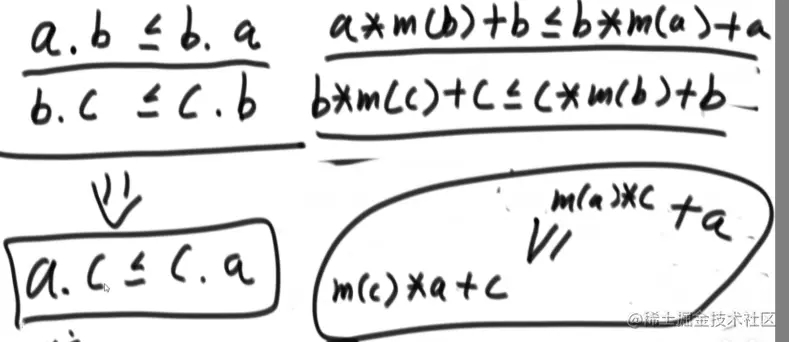 a.b ≤ b.a
b.c ≤ c.b
⇓
a.c ≤ c.a
a*m(b)+b ≤ b*m(a)+a
b*m(c)+c ≤ c*m(b)+b
m(a)*c + a
VI
m(c)*a+c
@稀土掘金技术社区